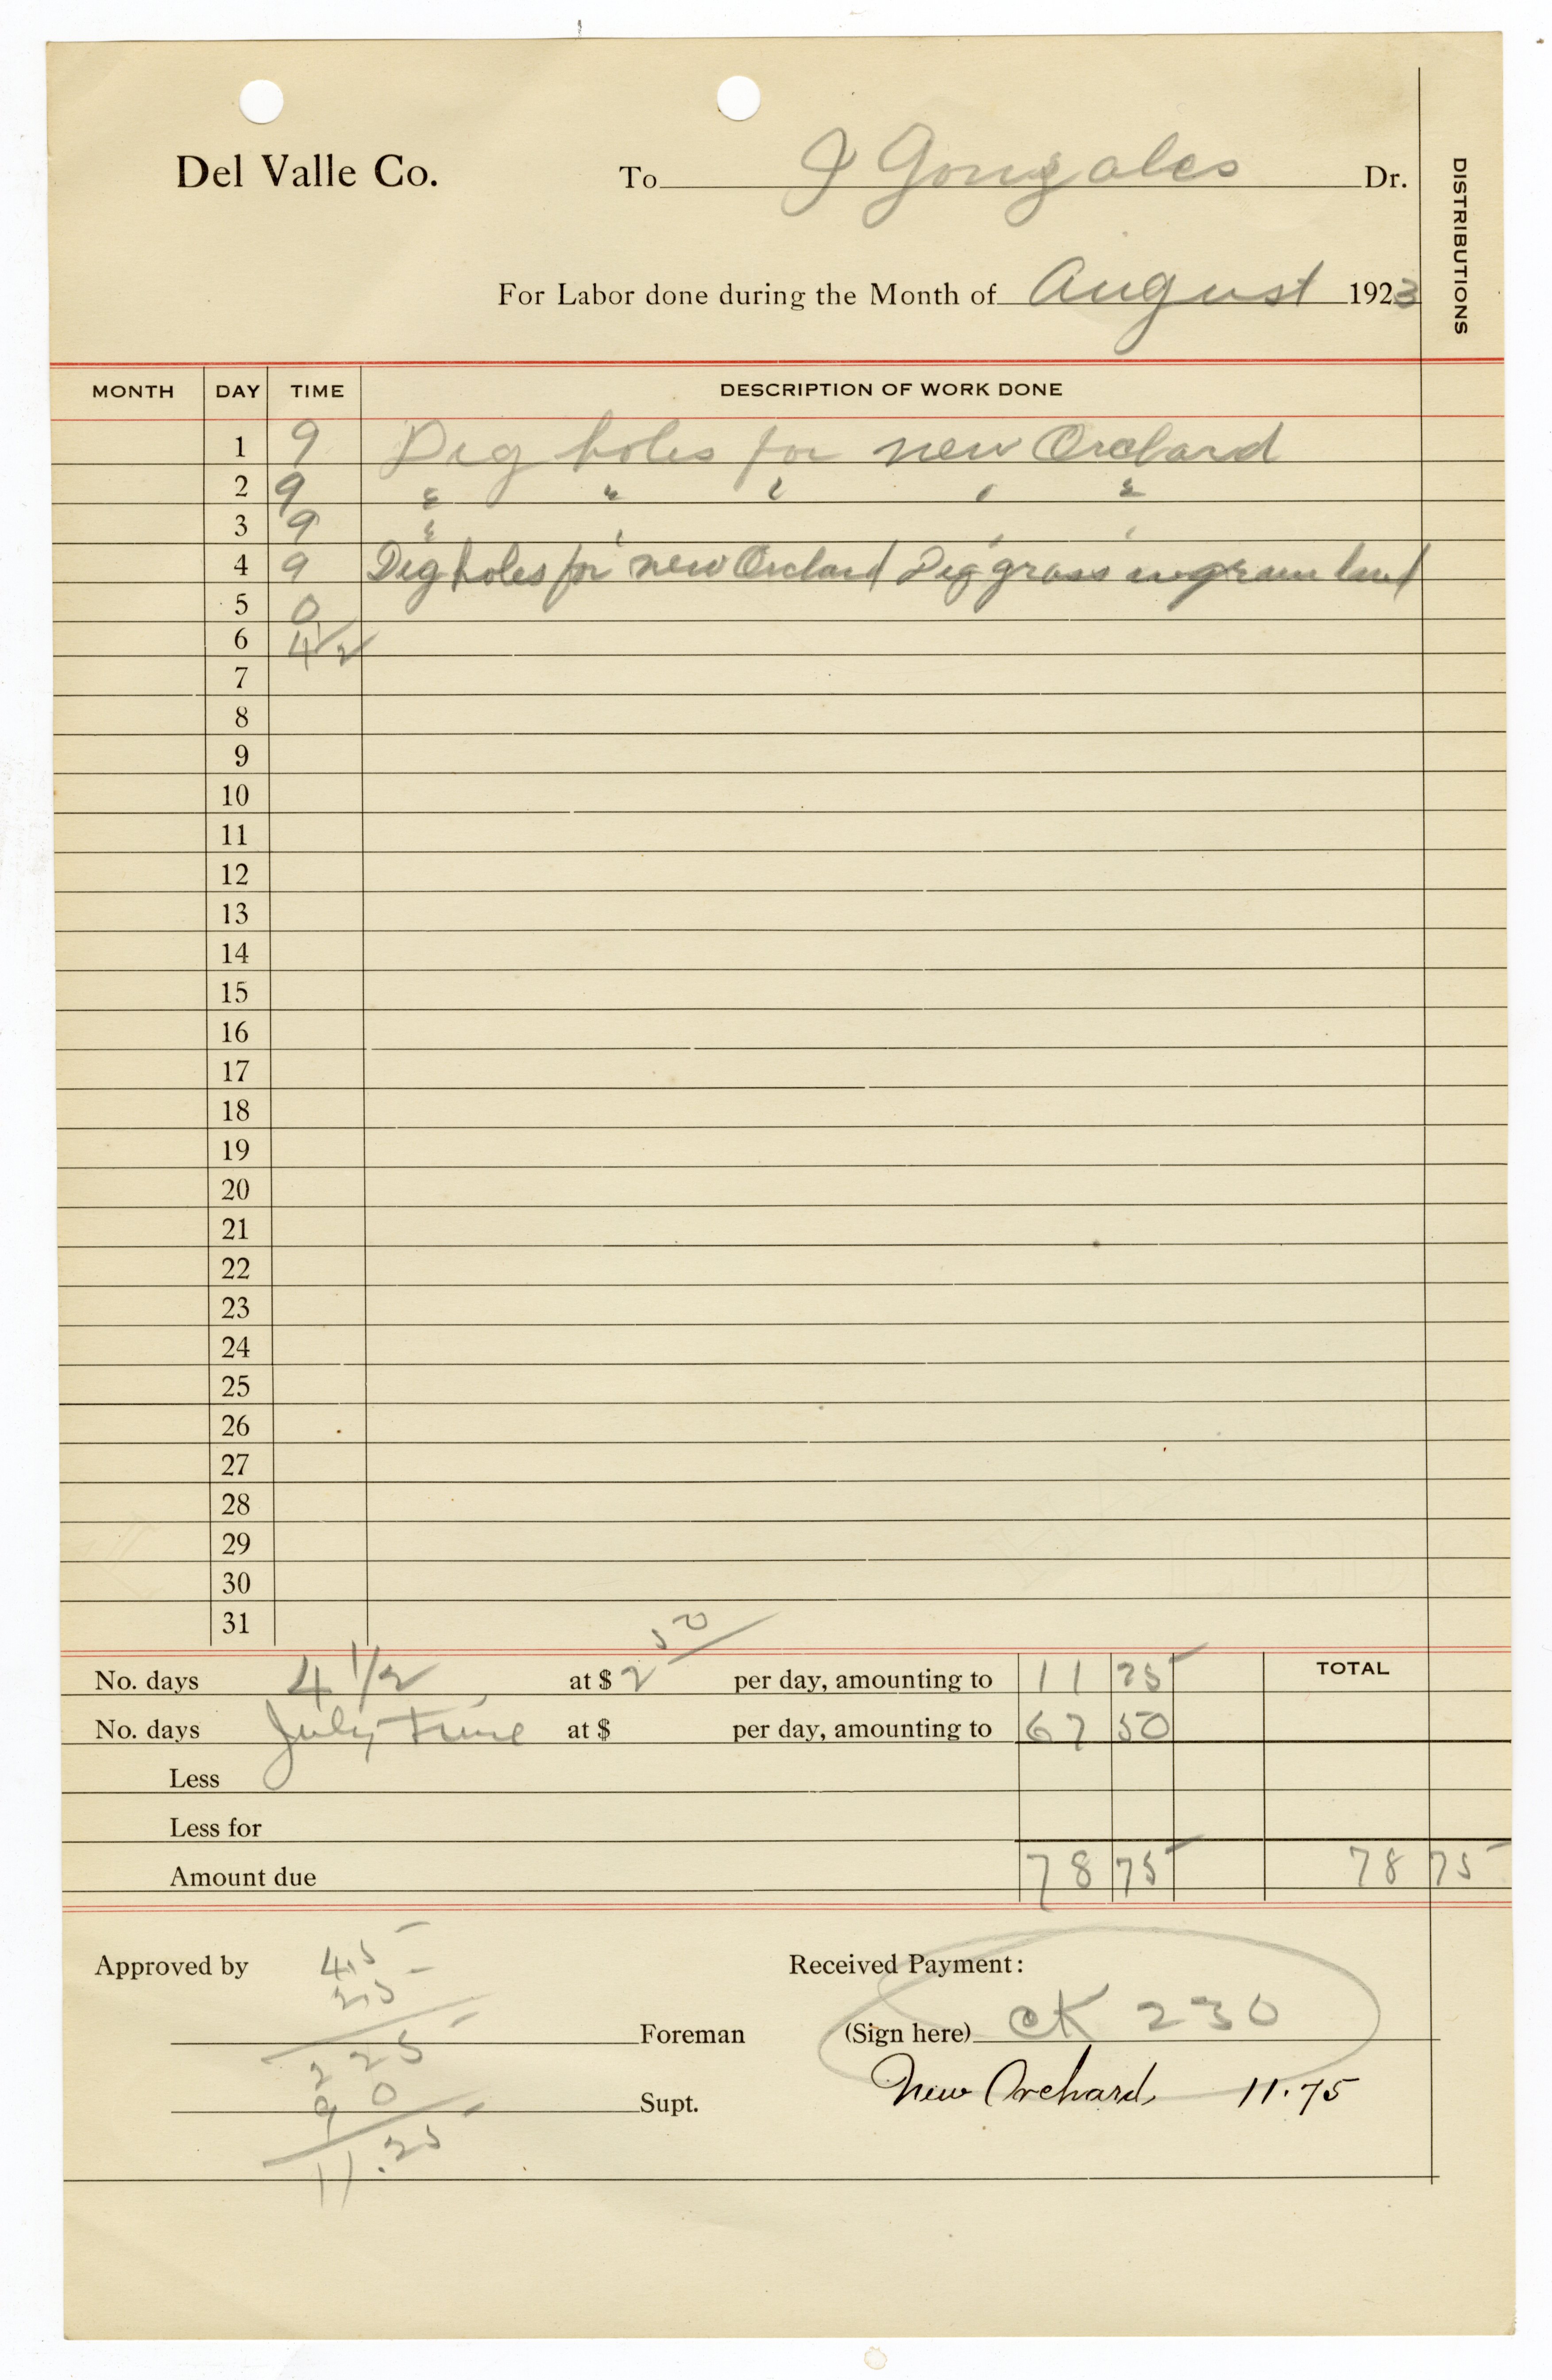 Del Valle Co. To J Gonzales Dr.
DISTRIBUTIONS
For Labor done during the Month of August 1923
MONTH DAY TIME DESCRIPTION OF WORK DONE
1 9 Dig holes for new Orchard
2 9 " " " " "
3 9 " " " "
4 9 Dig holes for new Orchard Dig grass in grain land
5 0
6 4 1/2
7
8
9
10
11
12
13
14
15
16
17
18
19
20
21
22
23
24
25
26
27
28
29
30
31
No. days 4 1/2 at $ 2 50 per day, amounting to 11 25 TOTAL
No. days July Time at $ per day, amounting to 67 50
Less
Less for
Amount due 78 75 78 75
Approved by 4.5 Received Payment:
2.5
Foreman (Sign here) CK 230
2 25
New Orchard 11.75
9 0 Supt.
11.25